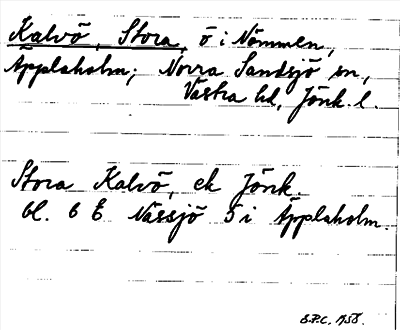 Kalvö, Stora, ö i Nömmen,
Äpplaholm; Norra Sandsjö sn,
Västra hd, Jönk. l.
Stora Kalvö, ek Jönk.
bl. 6 E Nässjö 5 i Äpplaholm.
E.P.C. 1958.